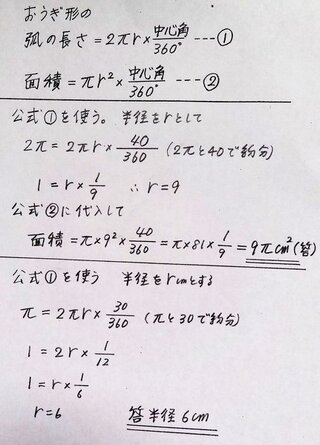 おうぎ形の
弧の長さ = 2πr × 中心角/360° --- ①
面積 = πr² × 中心角/360° --- ②
公式①を使う。 半径をrとして
2π = 2πr × 40/360 (2πと40で約分)
1 = r × 1/9 ∴ r = 9
公式②に代入して
面積 = π × 9² × 40/360 = π × 81 × 1/9 = 9πcm² (答)
公式①を使う 半径をrcmとする
π = 2πr × 30/360 (πと30で約分)
1 = 2r × 1/12
1 = r × 1/6
r = 6 答 半径 6cm